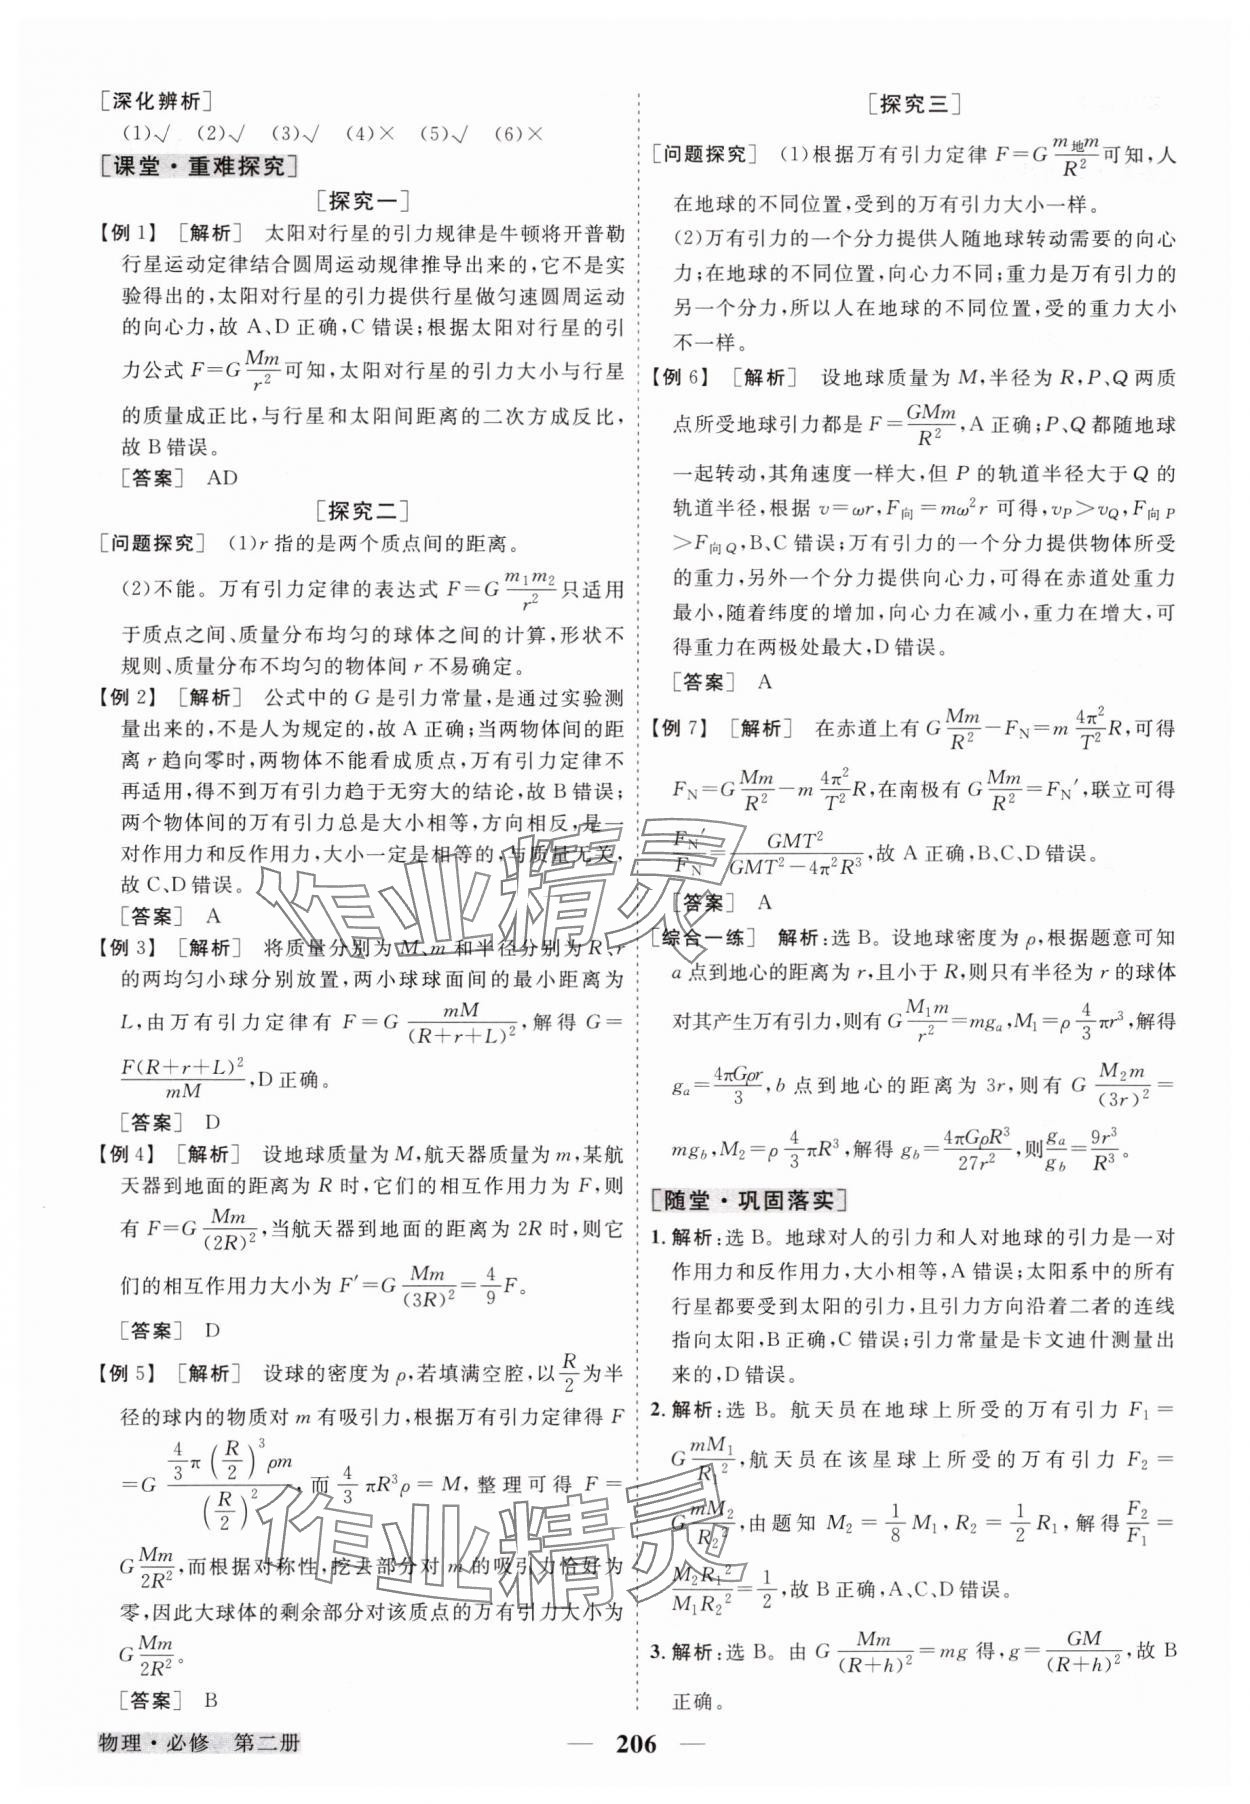 [深化辨析]
(1)√ (2)√ (3)√ (4)× (5)√ (6)×
[课堂·重难探究]
[探究一]
【例 1】 [解析] 太阳对行星的引力规律是牛顿将开普勒
行星运动定律结合圆周运动规律推导出来的,它不是实
验得出的,太阳对行星的引力提供行星做匀速圆周运动
的向心力,故 A、D 正确,C 错误;根据太阳对行星的引
力公式 F=G\frac{Mm}{r^2}可知,太阳对行星的引力大小与行星
的质量成正比,与行星和太阳间距离的二次方成反比,
故 B 错误。
[答案] AD
[探究二]
[问题探究] (1)r 指的是两个质点间的距离。
(2)不能。万有引力定律的表达式 F=G\frac{m_1m_2}{r^2}只适用
于质点之间、质量分布均匀的球体之间的计算,形状不
规则、质量分布不均匀的物体间 r 不易确定。
【例 2】 [解析] 公式中的 G 是引力常量,是通过实验测
量出来的,不是人为规定的,故 A 正确;当两物体间的距
离 r 趋向零时,两物体不能看成质点,万有引力定律不
再适用,得不到万有引力趋于无穷大的结论,故 B 错误;
两个物体间的万有引力总是大小相等,方向相反,是一
对作用力和反作用力,大小一定是相等的,与质量无关,
故 C、D 错误。
[答案] A
【例 3】 [解析] 将质量分别为 M、m 和半径分别为 R、r
的两均匀小球分别放置,两小球球面间的最小距离为
L,由万有引力定律有 F=G\frac{mM}{(R+r+L)^2},解得 G=
\frac{F(R+r+L)^2}{mM},D 正确。
[答案] D
【例 4】 [解析] 设地球质量为 M,航天器质量为 m,某航
天器到地面的距离为 R 时,它们的相互作用力为 F,则
有 F=G\frac{Mm}{(2R)^2},当航天器到地面的距离为 2R 时,则它
们的相互作用力大小为 F'=G\frac{Mm}{(3R)^2}=\frac{4}{9}F。
[答案] D
【例 5】 [解析] 设球的密度为 ρ,若填满空腔,以\frac{R}{2}为半
径的球内的物质对 m 有吸引力,根据万有引力定律得 F
=G\frac{\frac{4}{3}π(\frac{R}{2})^3ρm}{(\frac{R}{2})^2},而\frac{4}{3}πR^3ρ=M,整理可得 F=
G\frac{Mm}{2R^2},而根据对称性,挖去部分对 m 的吸引力恰好为
零,因此大球体的剩余部分对该质点的万有引力大小为
G\frac{Mm}{2R^2}。
[答案] B
[探究三]
[问题探究] (1)根据万有引力定律 F=G\frac{m_地m}{R^2}可知,人
在地球的不同位置,受到的万有引力大小一样。
(2)万有引力的一个分力提供人随地球转动需要的向心
力;在地球的不同位置,向心力不同;重力是万有引力的
另一个分力,所以人在地球的不同位置,受的重力大小
不一样。
【例 6】 [解析] 设地球质量为 M,半径为 R,P、Q 两质
点所受地球引力都是 F=\frac{GMm}{R^2},A 正确;P、Q 都随地球
一起转动,其角速度一样大,但 P 的轨道半径大于 Q 的
轨道半径,根据 v=ωr,F_向=mω^2r 可得,v_P>v_Q,F_{向P}
>F_{向Q},B、C 错误;万有引力的一个分力提供物体所受
的重力,另外一个分力提供向心力,可得在赤道处重力
最小,随着纬度的增加,向心力在减小,重力在增大,可
得重力在两极处最大,D 错误。
[答案] A
【例 7】 [解析] 在赤道上有 G\frac{Mm}{R^2}-F_N=m\frac{4π^2}{T^2}R,可得
F_N=G\frac{Mm}{R^2}-m\frac{4π^2}{T^2}R,在南极有 G\frac{Mm}{R^2}=F_N',联立可得
\frac{F_N'}{F_N}=\frac{GMT^2}{GMT^2-4π^2R^3},故 A 正确,B、C、D 错误。
[答案] A
[综合一练] 解析:选 B。设地球密度为 ρ,根据题意可知
a 点到地心的距离为 r,且小于 R,则只有半径为 r 的球体
对其产生万有引力,则有 G\frac{M_1m}{r^2}=mg_a,M_1=ρ\frac{4}{3}πr^3,解得
g_a=\frac{4πGρr}{3},b 点到地心的距离为 3r,则有 G\frac{M_2m}{(3r)^2}=
mg_b,M_2=ρ\frac{4}{3}πR^3,解得 g_b=\frac{4πGρR^3}{27r^2},则\frac{g_a}{g_b}=\frac{9r^3}{R^3}。
[随堂·巩固落实]
1. 解析:选 B。地球对人的引力和人对地球的引力是一对
作用力和反作用力,大小相等,A 错误;太阳系中的所有
行星都要受到太阳的引力,且引力方向沿着二者的连线
指向太阳,B 正确,C 错误;引力常量是卡文迪什测量出
来的,D 错误。
2. 解析:选 B。航天员在地球上所受的万有引力 F_1=
G\frac{mM_1}{R_1^2},航天员在该星球上所受的万有引力 F_2=
G\frac{mM_2}{R_2^2},由题知 M_2=\frac{1}{8}M_1,R_2=\frac{1}{2}R_1,解得\frac{F_2}{F_1}=
\frac{M_2R_1^2}{M_1R_2^2}=\frac{1}{2},故 B 正确,A、C、D 错误。
3. 解析:选 B。由 G\frac{Mm}{(R+h)^2}=mg 得,g=\frac{GM}{(R+h)^2},故 B
正确。
物理·必修 第二册
206
作业精灵
作业精灵